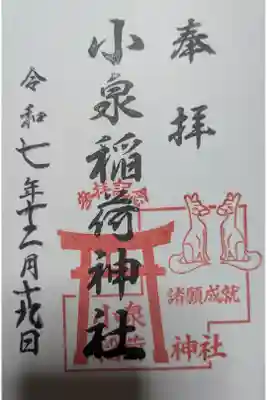 奉拝
小泉稲荷神社
令和七年十二月十九日
参拝記念
諸願成就
小泉
稲荷神社